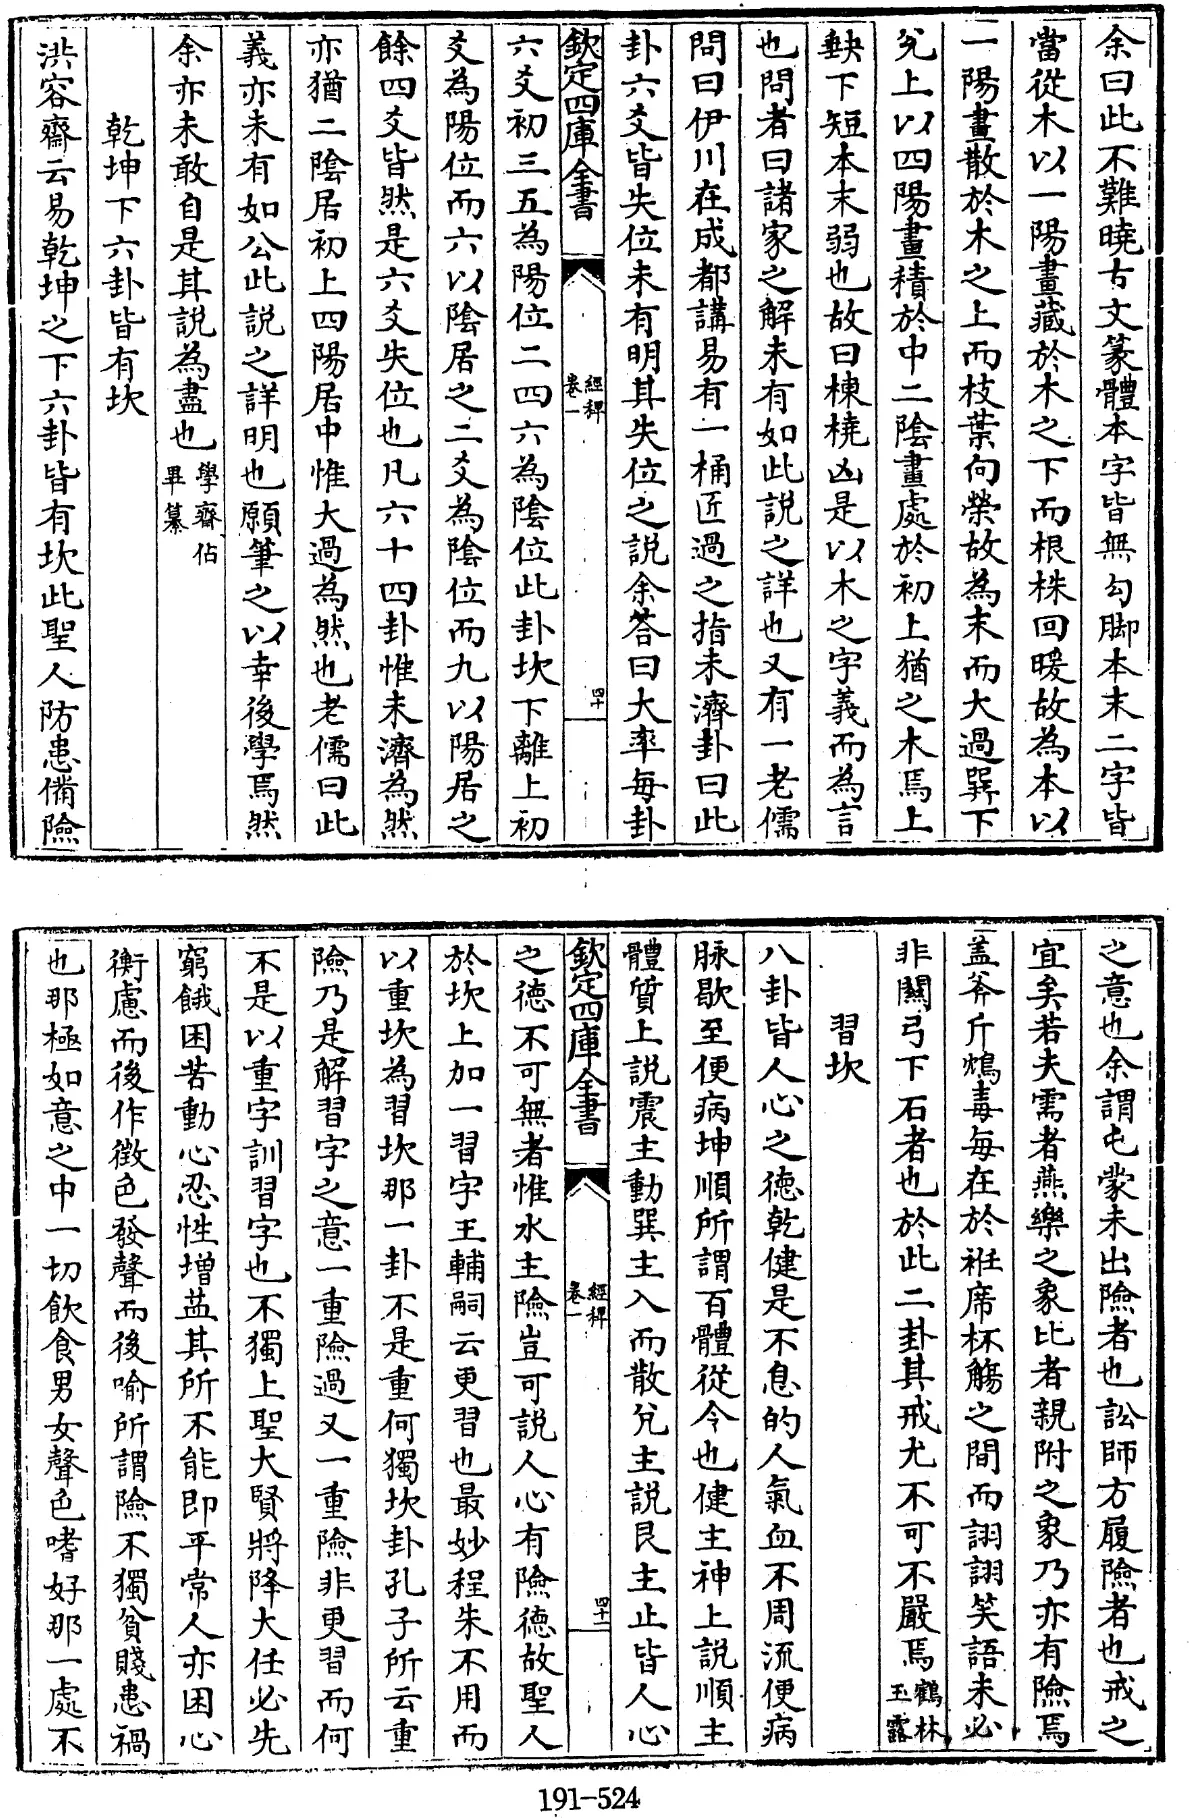 余曰此不難曉古文篆體本字皆無勾脚本末二字皆
當從木以一陽畫藏於木之下而根株回暖故為本以
一陽畫散於木之上而枝葉向榮故為末而大過巽下
兊上以四陽畫積於中二陰畫處於初上猶之木焉上
缺下短本末弱也故曰棟橈凶是以木之字義而為言
也問者曰諸家之解未有如此說之詳也又有一老儒
問曰伊川在成都講易有一桶匠過之指未濟卦曰此
卦六爻皆失位未有明其失位之說余答曰大率每卦
欽定四庫全書
經稗
卷一
四十
六爻初三五為陽位二四六為陰位此卦坎下離上初
爻為陽位而六以陰居之二爻為陰位而九以陽居之
餘四爻皆然是六爻失位也凡六十四卦惟未濟為然
亦猶二陰居初上四陽居中惟大過為然也老儒曰此
義亦未有如公此說之詳明也願筆之以幸後學焉然
余亦未敢自是其說為盡也學齋佔
畢纂
乾坤下六卦皆有坎
洪容齋云易乾坤之下六卦皆有坎此聖人防患備險
之意也余謂屯蒙未出險者也訟師方履險者也戒之
宜矣若夫需者燕樂之象比者親附之象乃亦有險焉
盖斧斤鴆毒每在於袵席杯觴之間而詡詡笑語未必
非關弓下石者也於此二卦其戒尤不可不嚴焉鶴林
玉露
習坎
八卦皆人心之德乾健是不息的人氣血不周流便病
脉歇至便病坤順所謂百體從令也健主神上說順主
體質上說震主動巽主入而散兊主說艮主止皆人心
欽定四庫全書
經稗
卷一
四十一
之德不可無者惟水主險豈可說人心有險德故聖人
於坎上加一習字王輔嗣云更習也最妙程朱不用而
以重坎為習坎那一卦不是重何獨坎卦孔子所云重
險乃是解習字之意一重險過又一重險非更習而何
不是以重字訓習字也不獨上聖大賢將降大任必先
窮餓困苦動心忍性增益其所不能即平常人亦困心
衡慮而後作徵色發聲而後喻所謂險不獨貧賤患禍
也那極如意之中一切飲食男女聲色嗜好那一處不
191-524